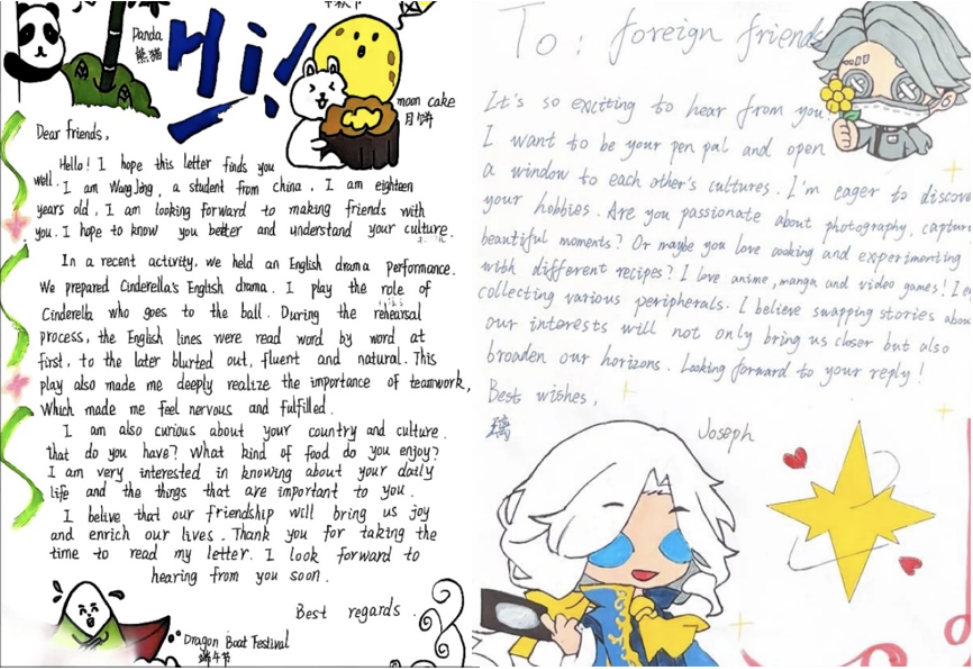 Panda
熊猫
Hi!
moon cake
月饼
Dear friends,
Hello! I hope this letter finds you
well. I am Wang Jing, a student from china. I am eighteen
years old. I am looking forward to making friends with
you. I hope to know you better and understand your culture.
In a recent activity, we held an English drama performance.
We prepared Cinderella's English drama. I play the role of
Cinderella who goes to the ball. During the rehearsal
process, the English lines were read word by word at
first, to the later blurted out, fluent and natural. This
play also made me deeply realize the importance of teamwork,
Which made me feel nervous and fulfilled.
I am also curious about your country and culture.
that do you have? What kind of food do you enjoy?
I am very interested in knowing about your daily
life and the things that are important to you.
I belive that our friendship will bring us joy
and enrich our lives. Thank you for taking the
time to read my letter. I look forward to
hearing from you soon.
Best regards.
Dragon Boat Festival
端午节
To: foreign friends
It's so exciting to hear from you.
I want to be your pen pal and open
a window to each other's cultures. I'm eager to discov
your hobbies. Are you passionate about photography, captur
beautiful moments? Or maybe you love cooking and experimenting
with different recipes? I love anime, manga and video games! I e
collecting various peripherals. I believe swapping stories abou
our interests will not only bring us closer but also
broaden our horizons. Looking forward to your reply!
Best wishes,
璃
Joseph